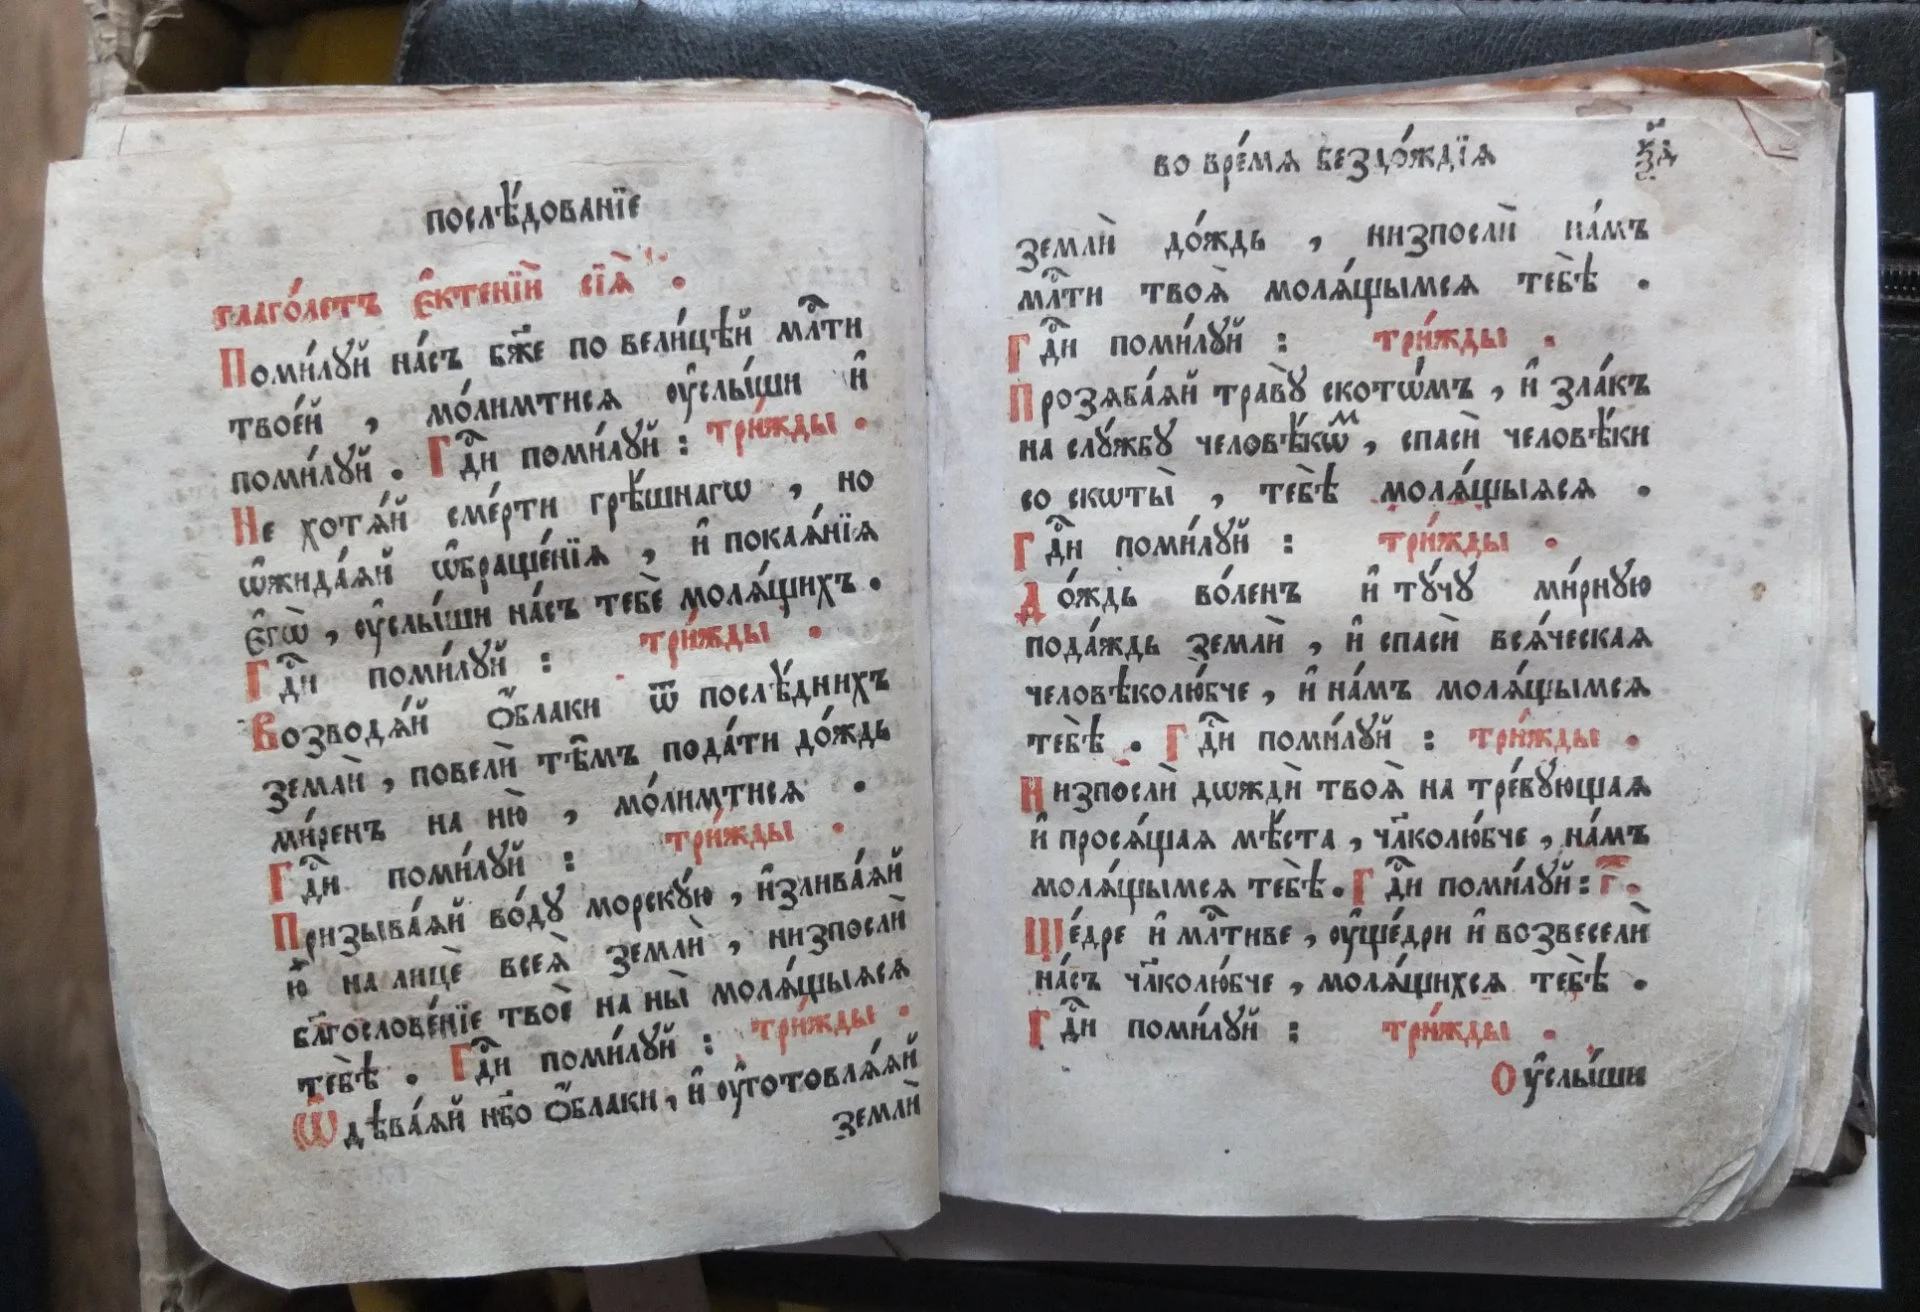 послѣ́дованїе
глаго́летъ є҆ктенїѝ сїѧ̀ .
Поми́лꙋй на́съ бж҃е по вели́цѣй мл҇ти
твое́й , мо́лимтисѧ ᲂу҆слы́ши и҆
поми́лꙋй . Гдⷭ҇и поми́лꙋй : три́жды .
Не хотѧ́й сме́рти грѣ́шнагѡ , но
ѡ҆жида́ѧй ѡ҆браще́нїѧ , и҆ покаѧ́нїѧ
є҆гѡ̀ , ᲂу҆слы́ши на́съ тебѐ молѧ́щихъ .
Гдⷭ҇и поми́лꙋй : три́жды .
Возводѧ́й ѻ҆́блаки ѿ послѣ́днихъ
землѝ , повелѝ тѣ̑мъ пода́ти до́ждь
ми́ренъ на ню̀ , мо́лимтисѧ .
Гдⷭ҇и поми́лꙋй : три́жды .
Призыва́ѧй во́дꙋ морскꙋ́ю , и҆злива́ѧй
ю҆̀ на лицѐ всеѧ̀ землѝ , низпослѝ
блг҇ослове́нїе твоѐ на ны̀ молѧ́щыѧсѧ
тебѣ̀ . Гдⷭ҇и поми́лꙋй : три́жды .
Ѿдѣва́ѧй нб҃о ѻ҆́блаки , и҆ ᲂу҆готовлѧ́ѧй
землѝ
во вре́мѧ бездо́ждїѧ
землѝ до́ждь , низпослѝ на́мъ
мл҇ти твоѧ̀ молѧ́щымсѧ тебѣ̀ .
Гдⷭ҇и поми́лꙋй : три́жды .
Прозѧба́ѧй травꙋ̀ скотѡ́мъ , и҆ зла́къ
на слꙋ́жбꙋ человѣ́кѡⷨ , спасѝ человѣ́ки
со скѡты̀ , тебѣ̀ молѧ́щыѧсѧ .
Гдⷭ҇и поми́лꙋй : три́жды .
До́ждь во́ленъ и҆ тꙋ́чꙋ ми́рнꙋю
пода́ждь землѝ , и҆ спасѝ всѧ́ческаѧ
человѣколю́бче , и҆ на́мъ молѧ́щымсѧ
тебѣ̀ . Гдⷭ҇и поми́лꙋй : три́жды .
Низпослѝ дѡждѝ твоѧ̀ на тре́бꙋющаѧ
и҆ просѧ́щаѧ мѣ́ста , чл҃колю́бче , на́мъ
молѧ́щымсѧ тебѣ̀ . Гдⷭ҇и поми́лꙋй : г҃ .
Ще́дре и҆ мл҇тиве , ᲂу҆ще́дри и҆ возвеселѝ
на́съ чл҃колю́бче , молѧ́щихсѧ тебѣ̀ .
Гдⷭ҇и поми́лꙋй : три́жды .
Оу҆слы́ши